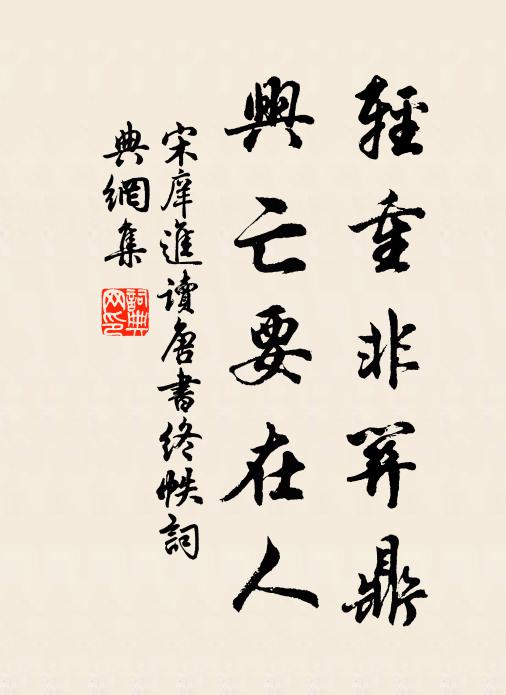 輕重非關鼎
興亡要在人
宋庠進讀唐書終帙詞
典網集
詞典網印